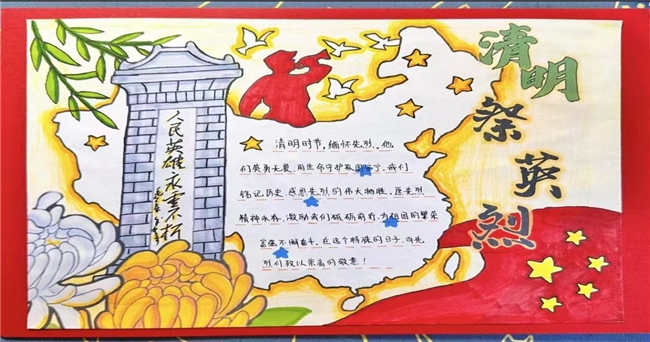 清明
祭英
烈
人民英雄永垂不朽
清明时节，缅怀先烈，他
们英勇无畏，用生命守护家国安宁。我们
铭记历史，感恩先烈的伟大牺牲。愿先烈
精神永存，激励我们砥砺前行，为祖国的繁荣
富强不懈奋斗。在这个特殊的日子，向先
烈们致以崇高的敬意！